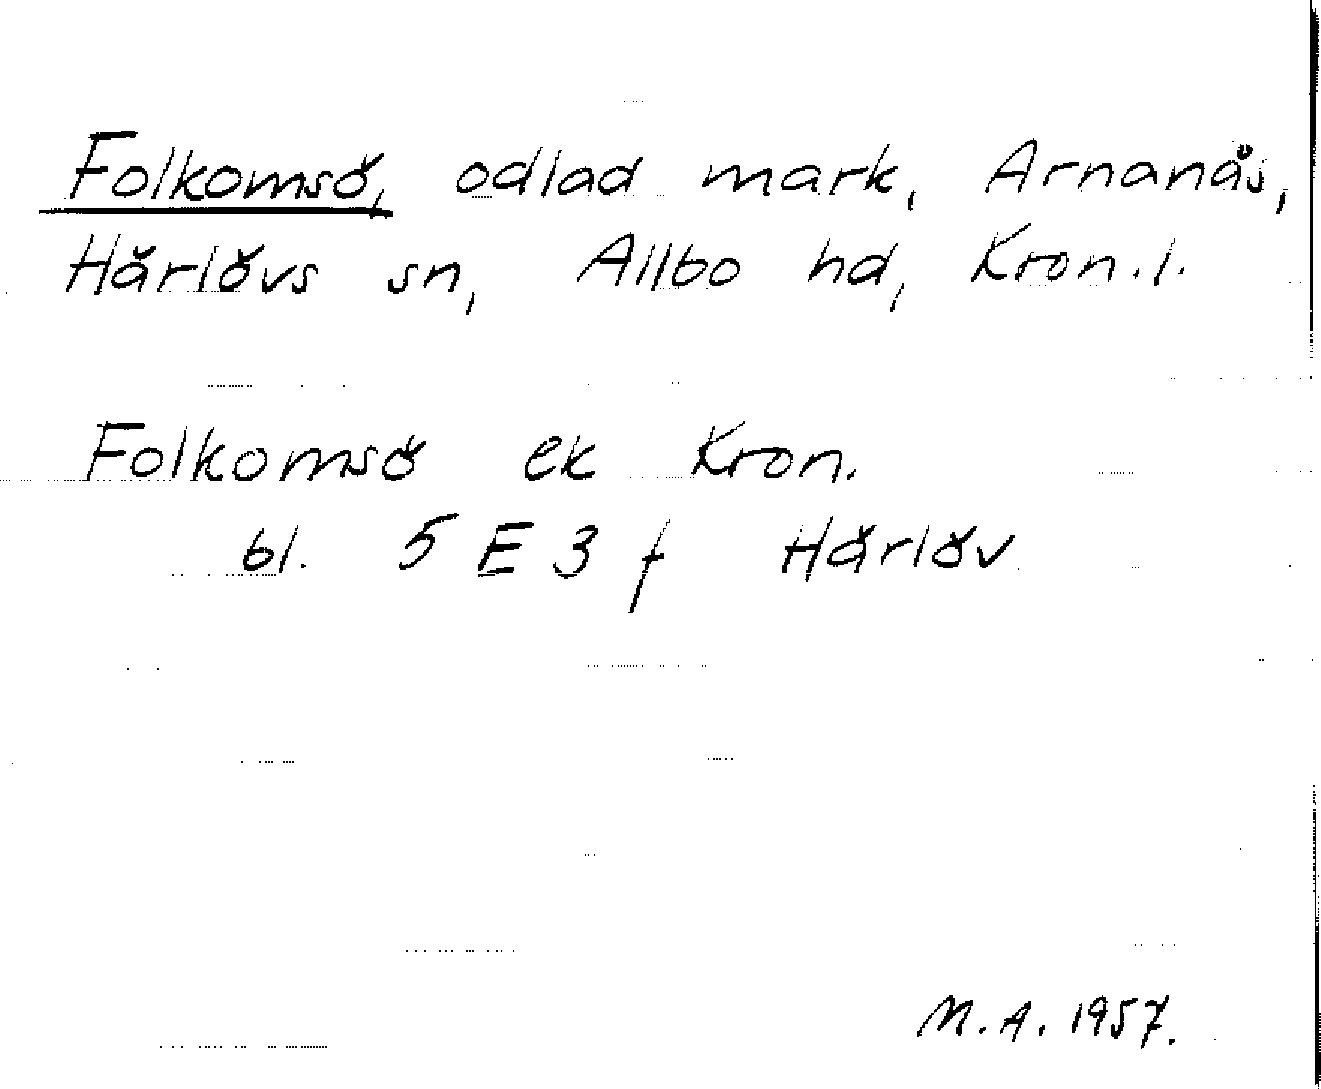 Folkomsö, odlad mark, Arnanås,
Härlövs sn, Allbo hd, Kron.l.
Folkomsö ek Kron.
bl. 5 E 3 f Härlöv
M.A. 1957.